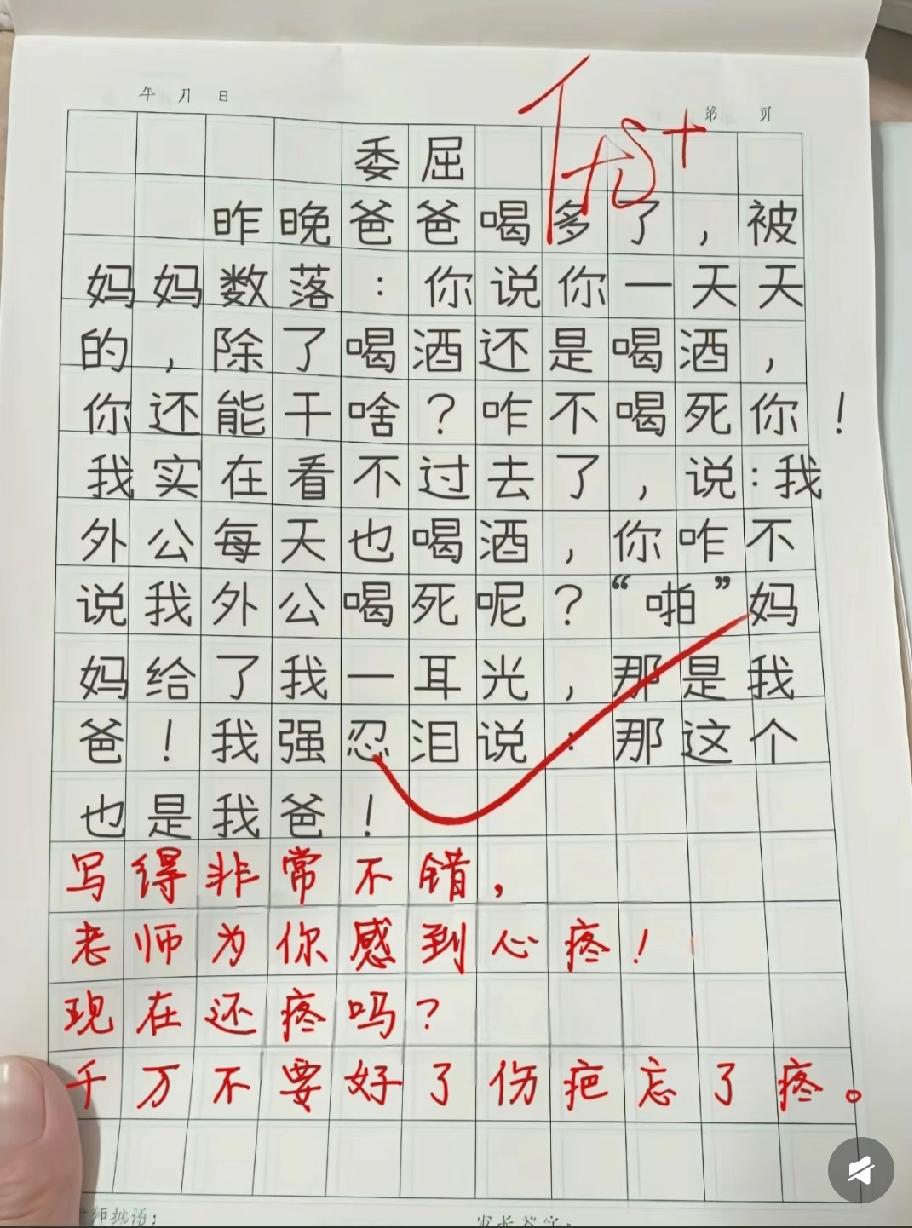 年 月 日
第 页
委屈
昨晚爸爸喝多了，被
妈妈数落：你说你一天天
的，除了喝酒还是喝酒，
你还能干啥？咋不喝死你！
我实在看不过去了，说：我
外公每天也喝酒，你咋不
说我外公喝死呢？“啪”妈
妈给了我一耳光，那是我
爸！我强忍泪说：那这个
也是我爸！
写得非常不错，
老师为你感到心疼！
现在还疼吗？
千万不要好了伤疤忘了疼。
师批语： 家长签字：